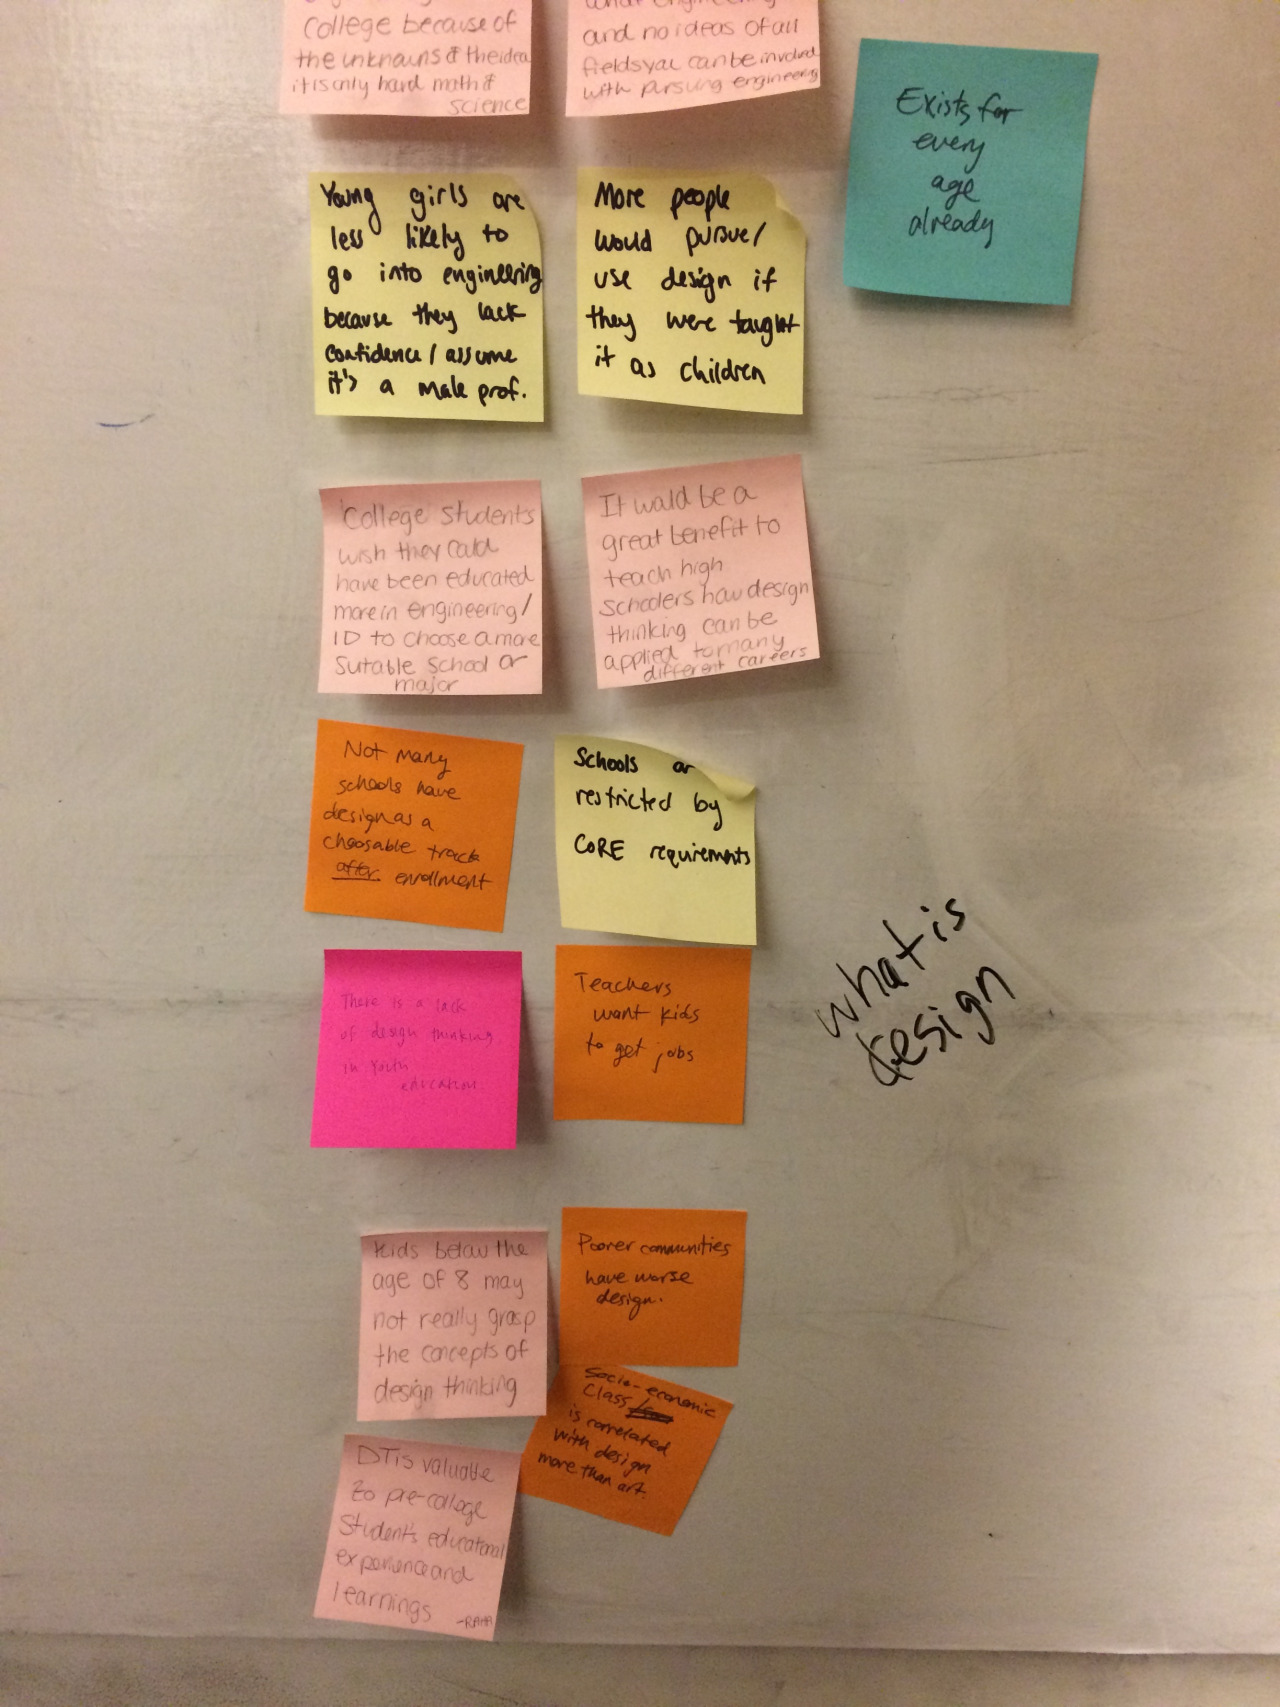 College because of
the unknowns & the idea
it is only hard math &
science
and no ideas of all
fields you can be involved
with pursuing engineering
Exists for
every
age
already
Young girls are
less likely to
go into engineering
because they lack
confidence / assume
it's a male prof.
More people
would pursue/
use design if
they were taught
it as children
College students
wish they could
have been educated
more in engineering/
ID to choose a more
suitable school or
major
It would be a
great benefit to
teach high
schoolers how design
thinking can be
applied to many
different careers
Not many
schools have
design as a
choosable track
after enrollment
Schools ar
restricted by
CORE requirements
There is a lack
of design thinking
in youth
education
Teachers
want kids
to get jobs
what is
design
Kids below the
age of 8 may
not really grasp
the concepts of
design thinking
Poorer communities
have worse
design.
Socio-economic
Class
is correlated
with design
more than art.
DT is valuable
to pre-college
Student's educational
experience and
learnings
-RAHA